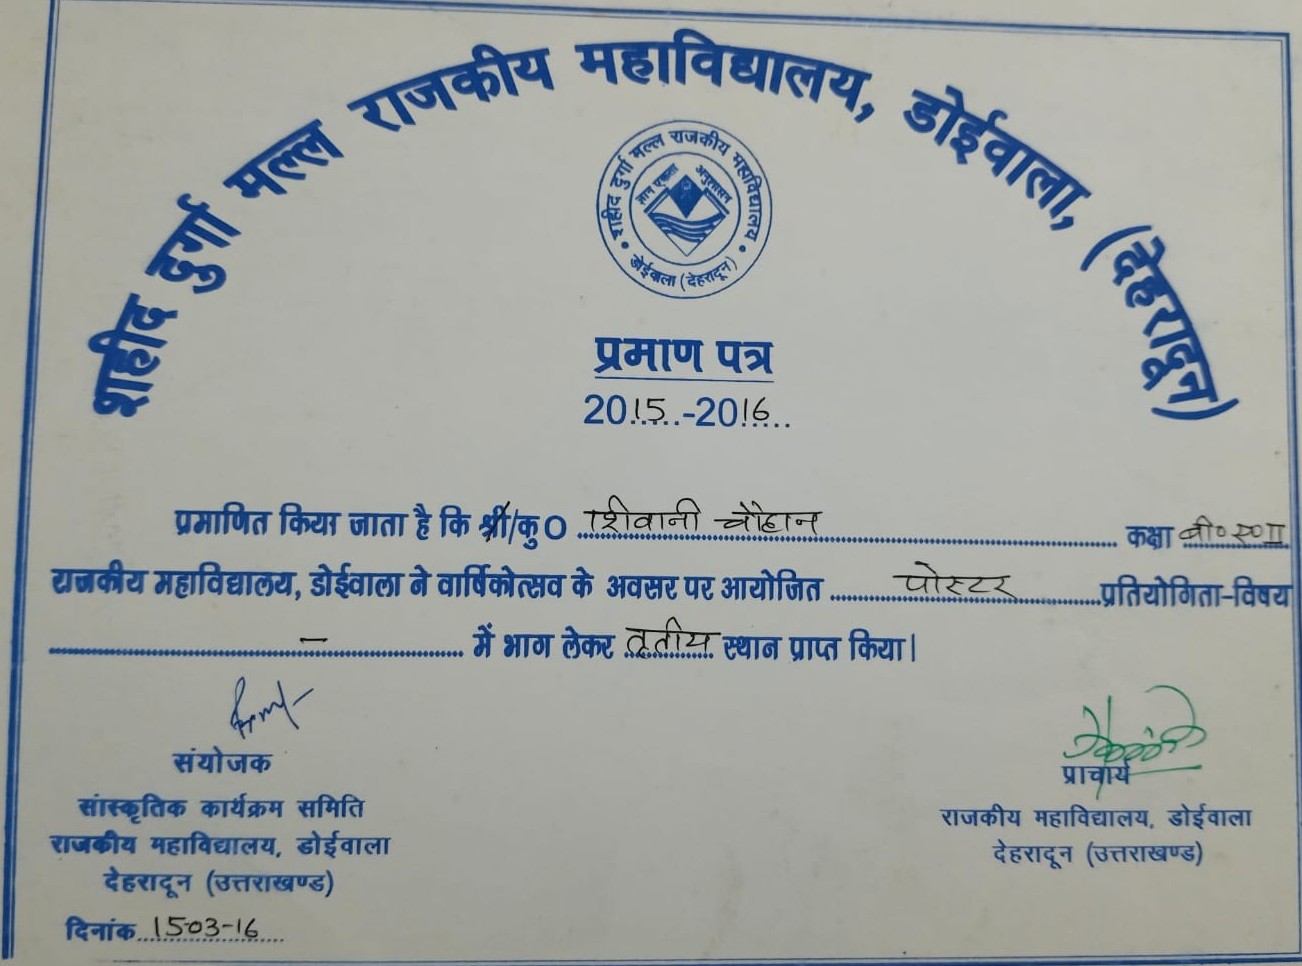 शहीद दुर्गा मल्ल राजकीय महाविद्यालय, डोईवाला, (देहरादून)
शहीद दुर्गा मल्ल राजकीय महाविद्यालय
ज्ञान एकता अनुशासन
डोईवाला (देहरादून)
प्रमाण पत्र
2015-2016
प्रमाणित किया जाता है कि श्री/कु० शिवानी चौहान कक्षा बी० ए० II
राजकीय महाविद्यालय, डोईवाला ने वार्षिकोत्सव के अवसर पर आयोजित पोस्टर प्रतियोगिता-विषय
– में भाग लेकर तृतीय स्थान प्राप्त किया।
संयोजक
सांस्कृतिक कार्यक्रम समिति
राजकीय महाविद्यालय, डोईवाला
देहरादून (उत्तराखण्ड)
दिनांक 15-03-16
प्राचार्य
राजकीय महाविद्यालय, डोईवाला
देहरादून (उत्तराखण्ड)